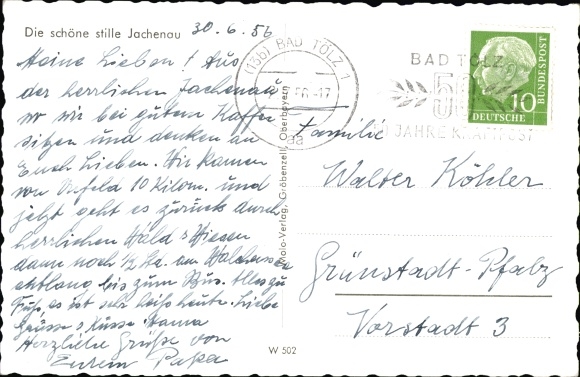 Die schöne stille Jachenau
30.6.56
Meine Lieben! Aus
der herrlichen Jachenau
wo wir bei gutem Kaffee
sitzen und denken an
Euch Lieben. Wir kamen
von 10 Kilom. und
jetzt geht es zurück durch
herrlichen Wald & Wiesen
dann noch 1/2 Std. am Walchensee
entlang bis zum Bus. Alles zu
Fuß, es ist sehr heiß heute. Liebe
Grüsse & Küsse Mama
Herzliche Grüße von
Eurem Papa
(13b) BAD TÖLZ 1
56.-17
aa
BAD TÖLZ
50
JAHRE KRAFTPOST
DEUTSCHE
BUNDESPOST
10
Familie
Walter Köhler
Grünstadt-Pfalz
Vorstadt 3
Molo-Verlag, Gröbenzell, Oberbayern
W 502